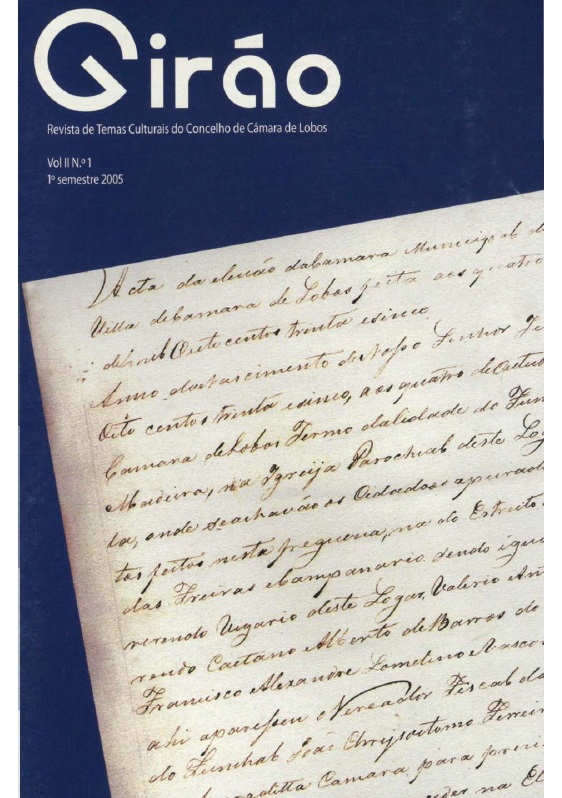 Girão
Revista de Temas Culturais do Concelho de Câmara de Lobos
Vol II N.º 1
1º semestre 2005
Acta da eleicão daCamara Municipal d
Villa deCamara de Lobos feita aos quatro
de mil Oito centos trinta e sinco
Anno do Nascimento de Nosso Senhor Je
Oito centos trinta e sinco, aos quatro de Outu
Camara de Lobos Termo da Cidade do Fun
Madeira, na Igreija Parochial deste Lo
la, onde se achavão os Cidadaos apurad
tos feitos nesta freguezia, na do Estreito
das Freiras e Campanario sendo igu
verendo Vigario deste Logar, Valerio An
rendo Caetano Alberto de Barros do
Francisco Alexandre Lomelino Vascon
ahi apareseu o Vereador Fiscal da
do Funchal João Chrysostomo Ferrei
ditta Camara para
na